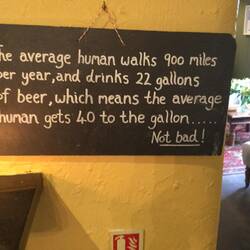 he average human walks 900 miles
per year, and drinks 22 gallons
of beer, which means the average
human gets 40 to the gallon.....
Not bad!